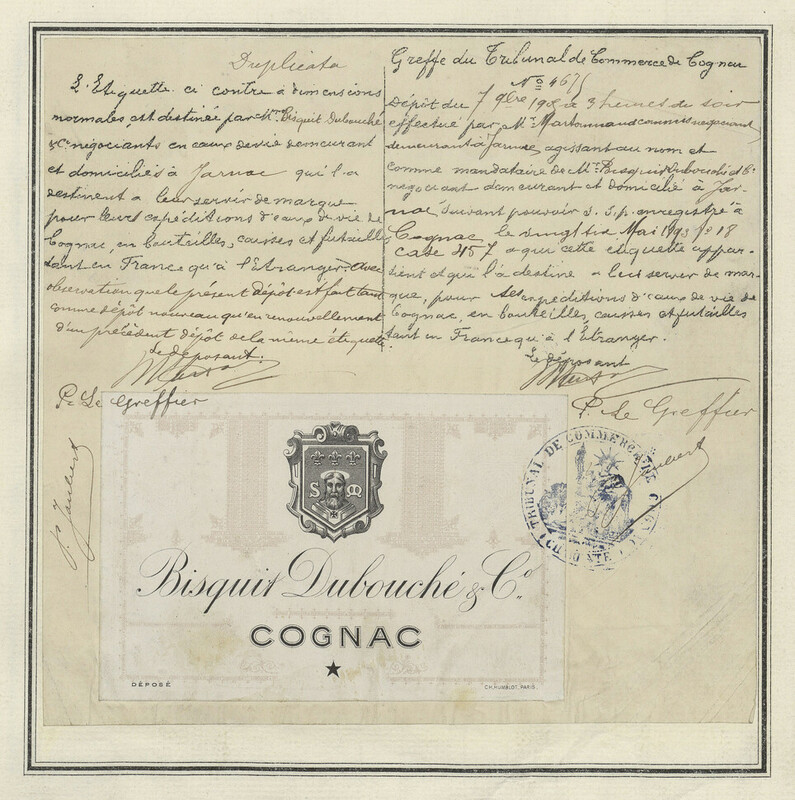 Duplicata
L'Etiquette ci contre à dimensions
normales est destinée par Mrs Bisquit Dubouché
& Cie négociants en eaux de vie demeurant
et domiciliés à Jarnac qui l'a
destinent a leur servir de marque
pour leurs expéditions d'eaux de vie de
Cognac, en bouteilles, caisses et futailles
tant en France qu'à l'Etranger. Avec
observation que le présent dépôt est fait tant
comme dépôt nouveau qu'en renouvellement
d'un précédent dépôt de la même étiquette
Le déposant.
Pr Le Greffier
J. Jaubert
Greffe du Tribunal de Commerce de Cognac
No 467
Dépôt du 7 9bre à 3 heures du soir
effectué par Mr commis négociant
demeurant à Jarnac, agissant au nom et
comme mandataire de Mrs Bisquit Dubouché & Cie
négociant demeurant et domicilié à Jar-
nac, suivant pouvoir s. s. p. enregistré à
Cognac, le vingt six Mai 1903 fo 18
case 457 a qui cette etiquette appar-
tient et qui l'a destine a leur servir de mar-
que, pour ses expéditions d'eaux de vie de
Cognac, en bouteilles, caisses et futailles
tant en France qu'à l'Etranger.
Le déposant
P. Le Greffier
Jaubert
TRIBUNAL DE COMMERCE DE COGNAC
(CHARENTE)
S M
Bisquit Dubouché & Co.
COGNAC
DÉPOSÉ
CH. HUMBLOT, PARIS.